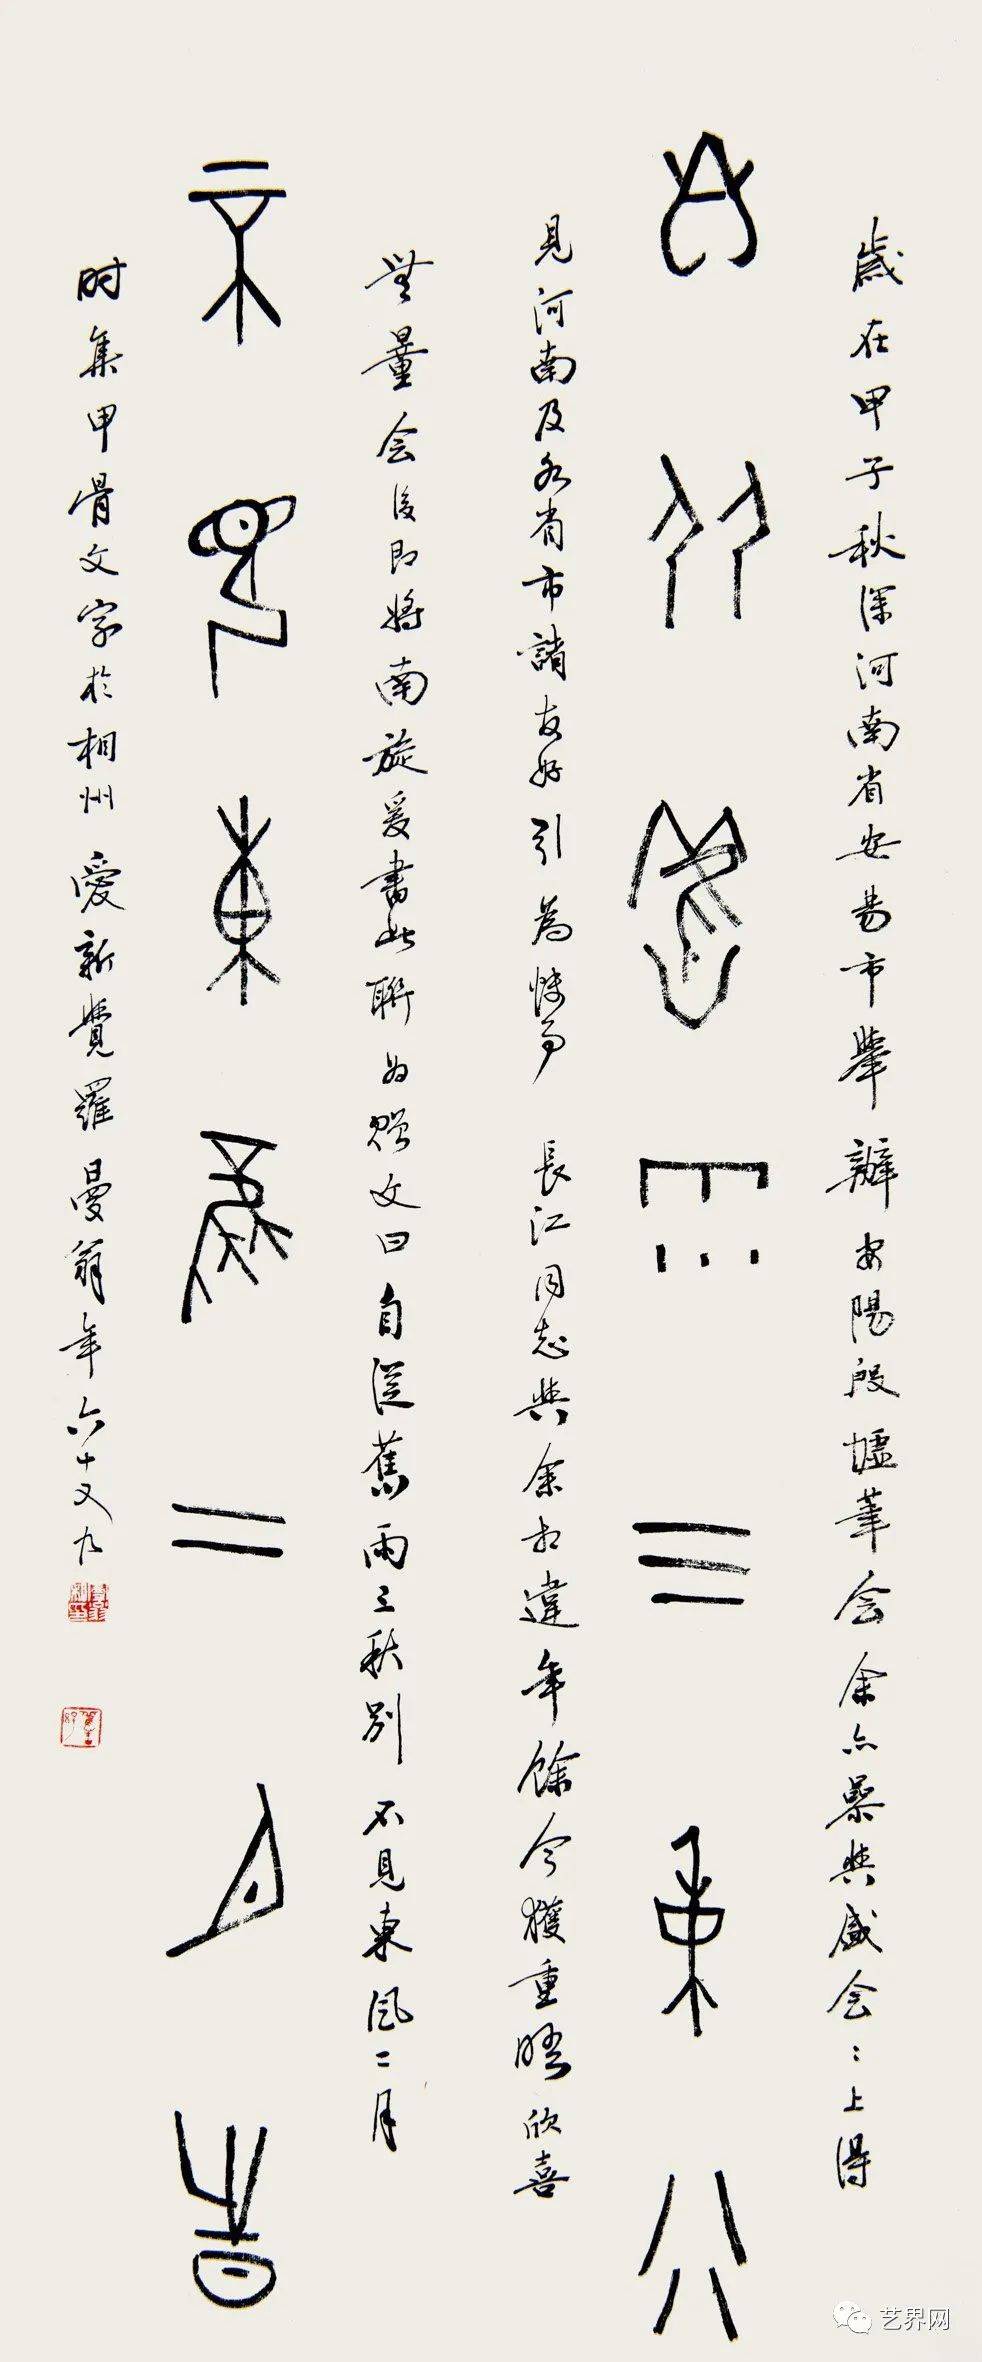 歲在甲子秋深河南省安昜市舉辦安陽殷墟筆会余亦叅與盛会〻上得
自从舊雨三秋別
見河南及各省市諸友好引為快事 長江同志與余相違年餘今獲重晤欣喜
無量会後即將南旋爰書此聯為贈文曰自從舊雨三秋別 不見東風二月
不見東風二月時
时集甲骨文字於相州 愛新覺羅曼翁年六十又九
艺界网